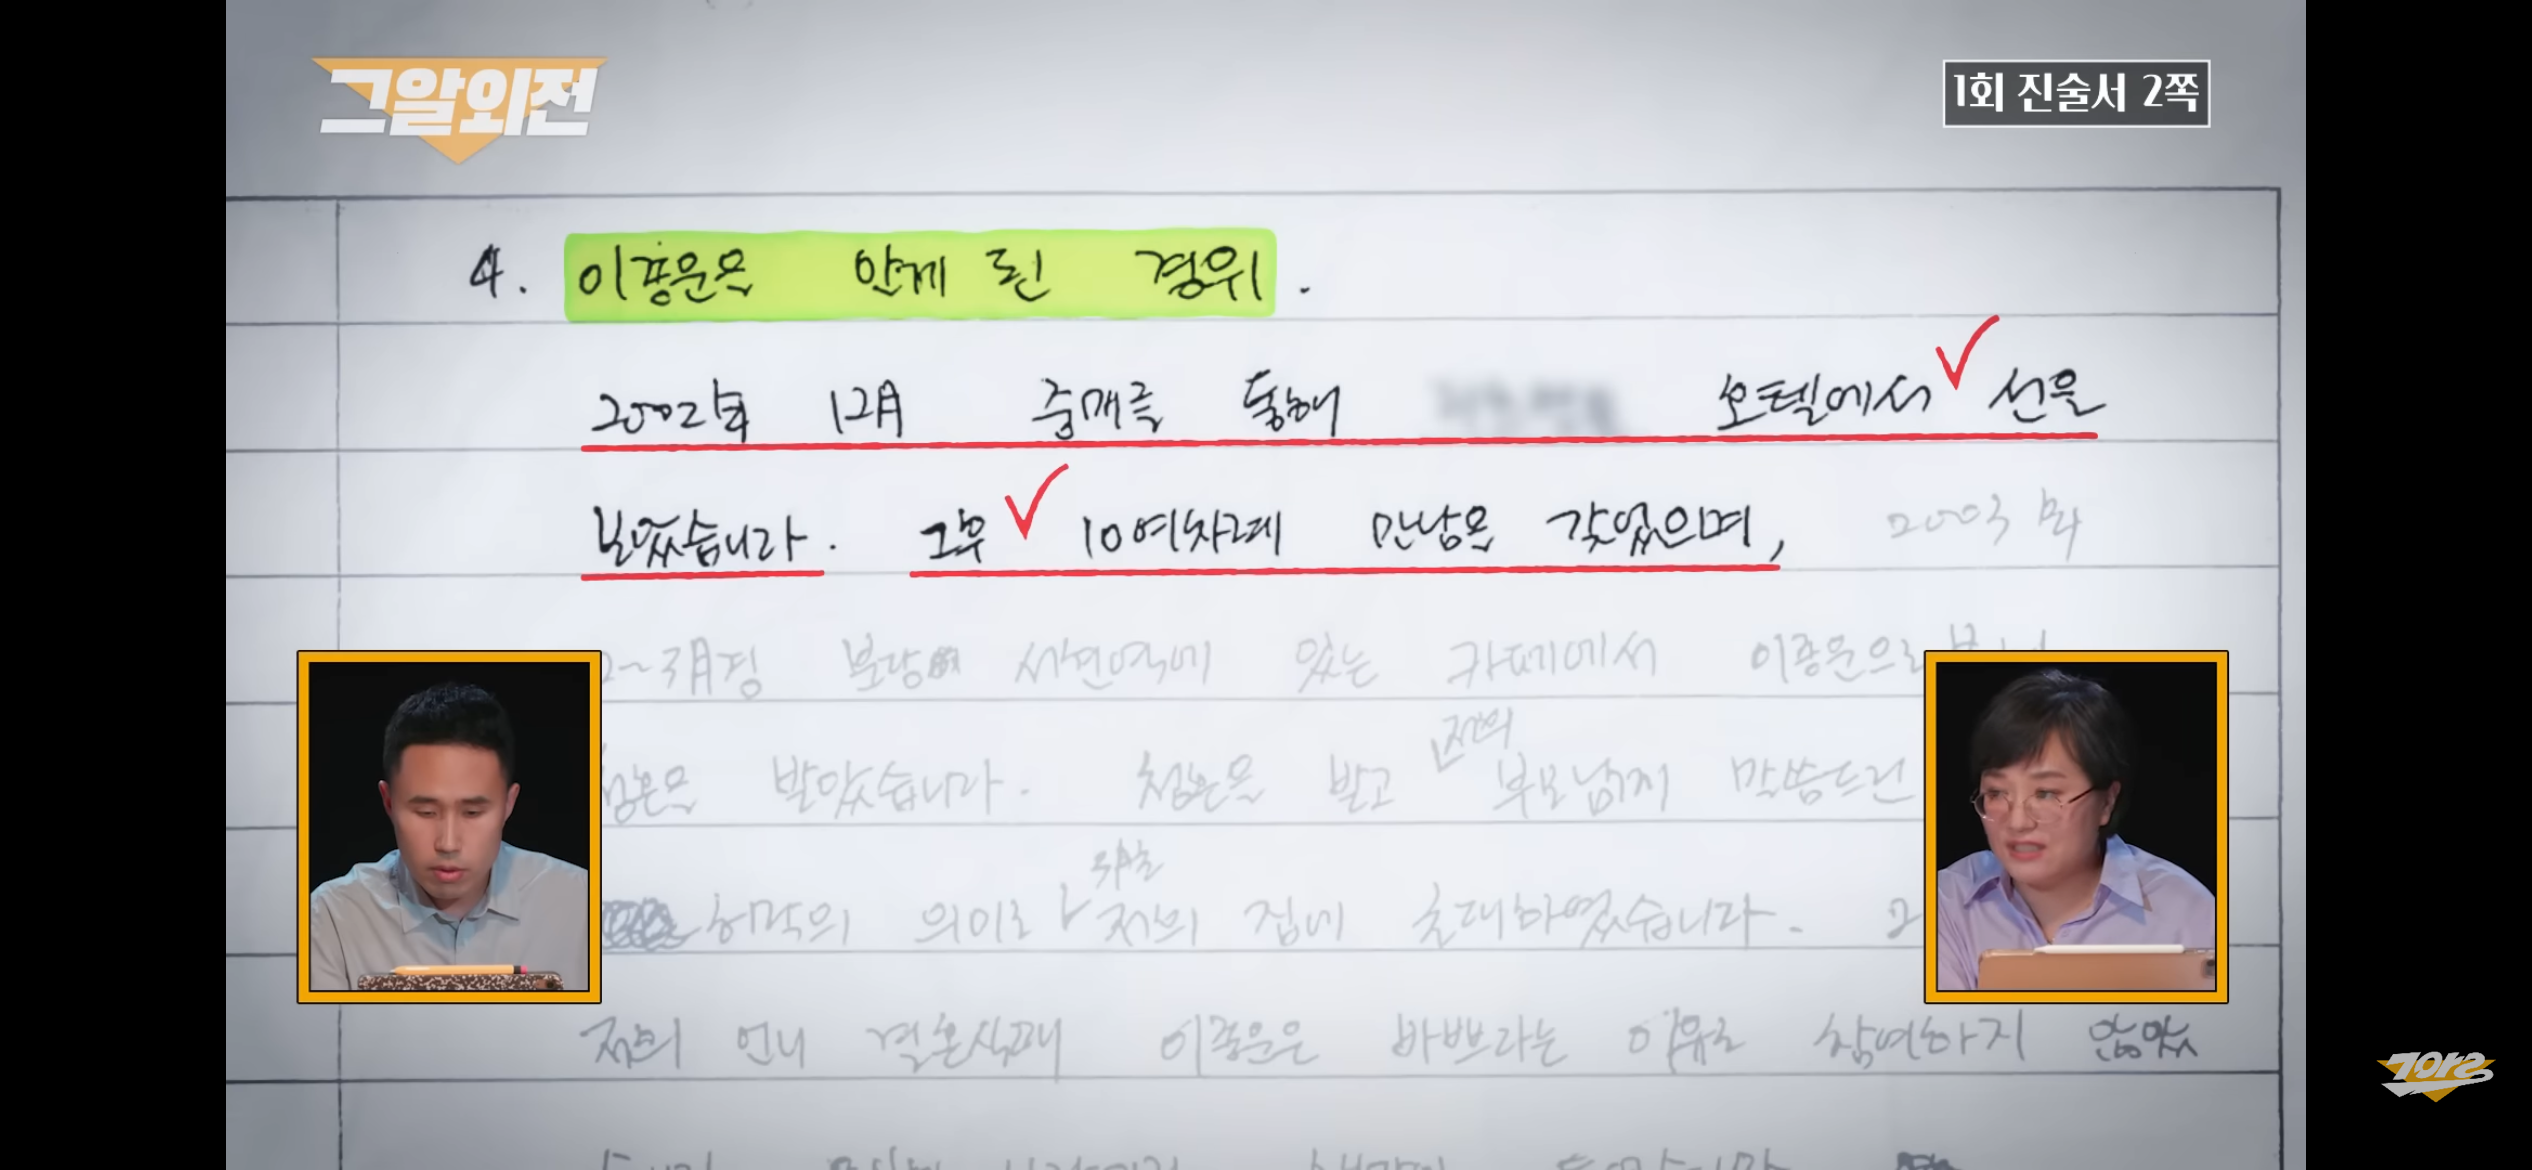 그알외전
1회 진술서 2쪽
4. 이종운은 안게 된 경위.
2002년 12月 중매를 통해 호텔에서 선을
보았습니다. 그후 10여차례 만남은 갖었으며, 2003
2~3月경 분당 서현역에 있는 카페에서 이종운으로
청혼은 받았습니다. 청혼은 받고 저의 부모님께 말씀드린
허락의 의미로 저의 집에 초대하였습니다. 2
저의 언니 결혼식때 이종운은 바쁘다는 이유로 참여하지 않았
그알